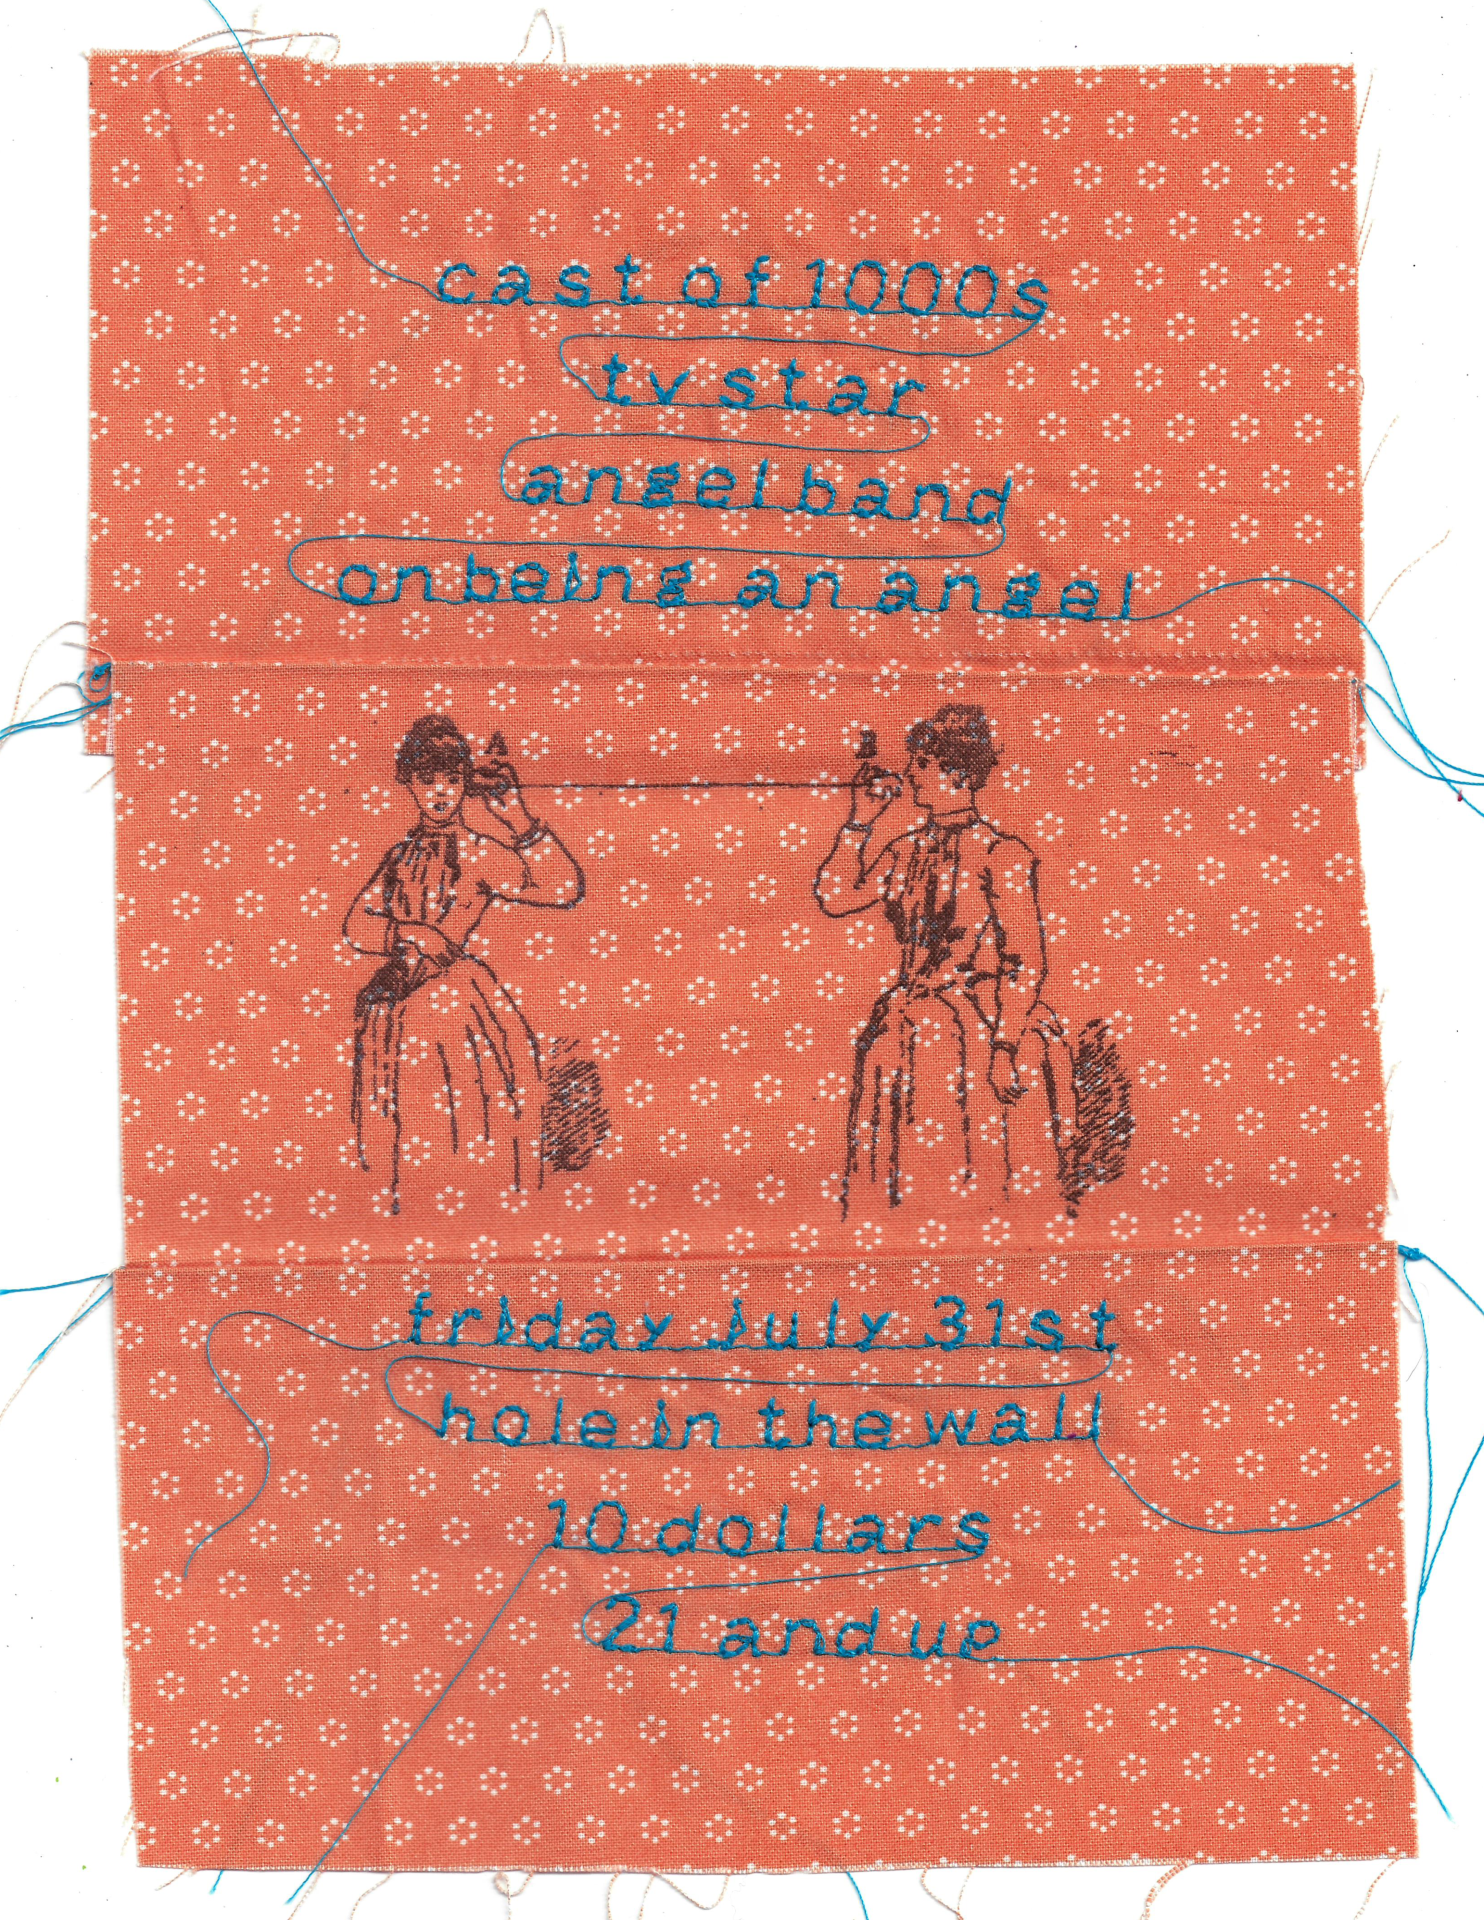 cast of 1000s
tv star
angel band
on being an angel
A B
friday july 31st
hole in the wall
10 dollars
21 and up